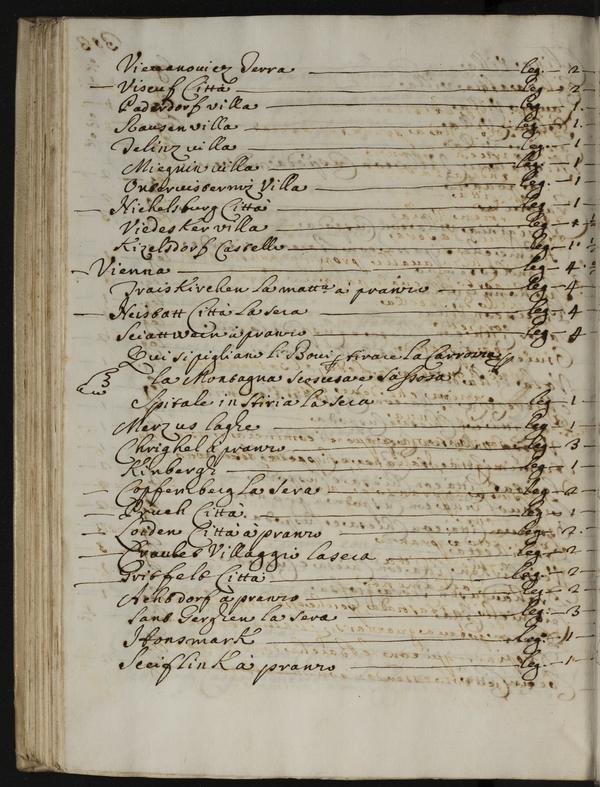 Viemanovicz Terra — leg. — 2
— Viseuf Città — leg — 2
Paderdorf villa — leg — 1
Rausen villa — leg — 1
Telinz villa — leg. 1
Miegnin villa — leg — 1
Untervisternitz Villa — leg. — 1
— Nichelsburg Città — leg — 1
Viedesker villa — leg — 1 ½
Kizelsdorf Castello — leg — 1 ½
— Vienna — leg — 4
Traiskirchen la matt.ª à pranzo — leg — 4
— Neistatt Città la sera — leg — 4
Sciattwein à pranzo — leg — 4
Qui si pigliano li Bovi p tirare la Carrozza
la Montagna scoscesa e sassosa
Spitale in Stiria la sera — leg — 1
Merzuslaghe — leg — 1
Chrighel à pranzo — leg — 3
Kinbergh — leg — 1
— Copfemberg la sera — leg — 2
— Pruch Città — leg — 1
— Loiden Città à pranzo — leg — 2
— Craubet Villaggio la sera — leg — 2
— Gritfelt Città — leg — 2
Achsdorf à pranzo — leg — 2
Sant Gerghen la sera — leg — 3
Honsmark — leg — 1
Sciflink à pranzo — leg — 1